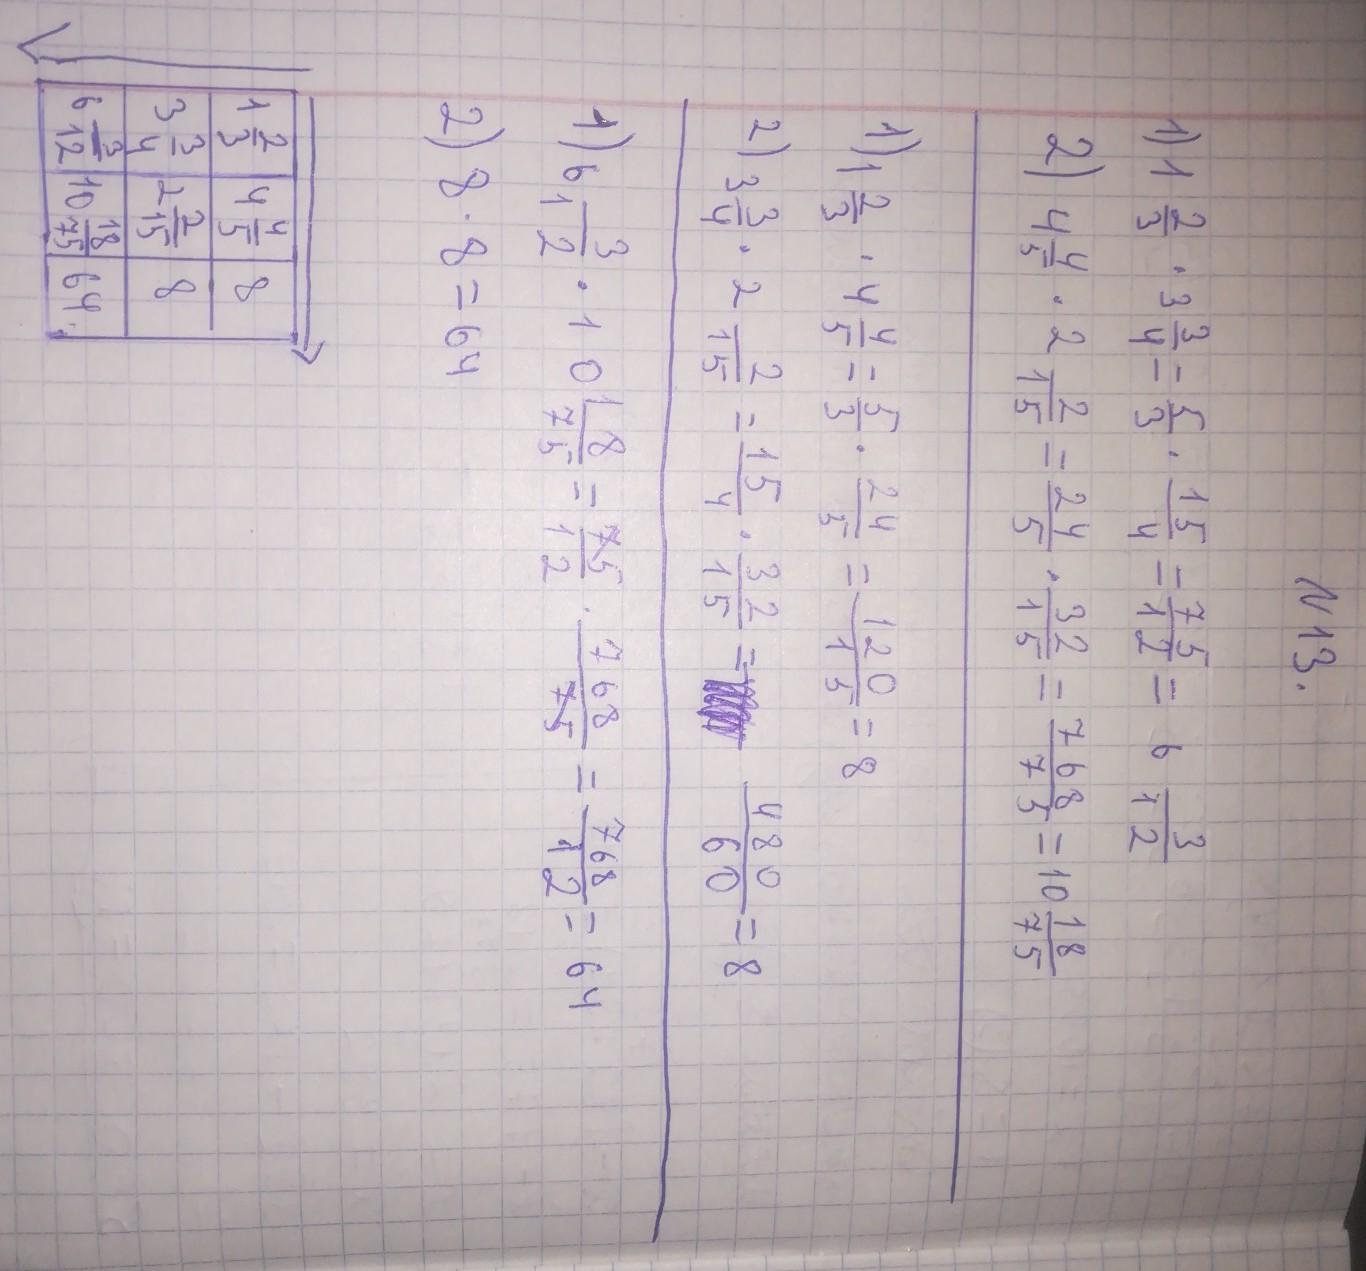 N 13.
1) 1 2/3 · 3 3/4 = 5/3 · 15/4 = 75/12 = 6 3/12
2) 4 4/5 · 2 2/15 = 24/5 · 32/15 = 768/75 = 10 18/75
1) 1 2/3 · 4 4/5 = 5/3 · 24/5 = 120/15 = 8
2) 3 3/4 · 2 2/15 = 15/4 · 32/15 = 480/60 = 8
1) 6 3/12 · 10 18/75 = 75/12 · 768/75 = 768/12 = 64
2) 8 · 8 = 64
1 2/3 4 4/5 8
3 3/4 2 2/15 8
6 3/12 10 18/75 64